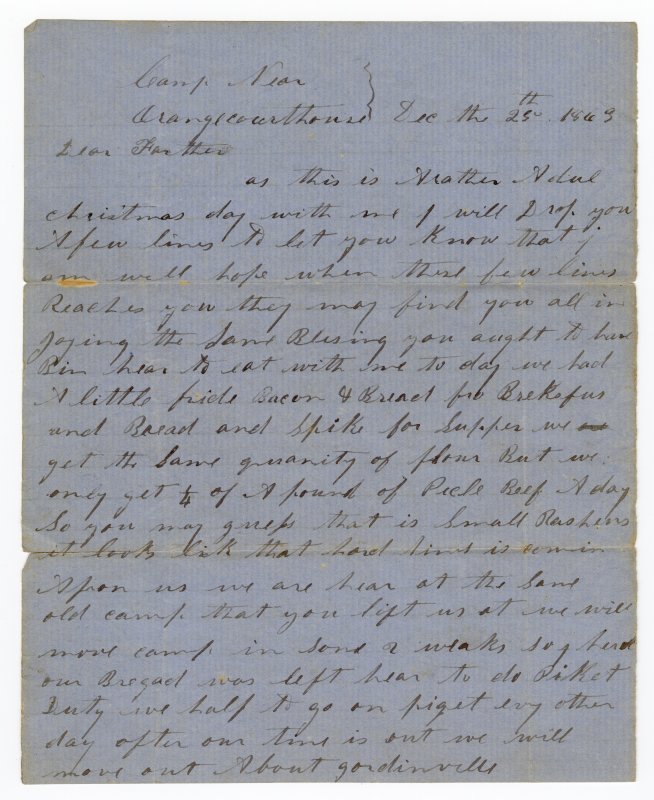 Camp Near
Orangecourthouse } Dec the 25th. 1863
Dear Farther
as this is Arather Adul
christmas day with me I will Drop you
Afew lines to let you Know that j
am well hope when these few lines
Reaches you they may find you all in
joying the Same Blesing you aught to have
Bin hear to eat with me to day we had
A little fride Bacon & Bread for Brekefus
and Baead and Spike for Supper we
get the Same qusanity of flour But we
only get 1/4 of A pound of Pecle Beef A day
So you may guess that is Small Rashens
it looks lik that hard times is comin
Apon us we are hear at the Same
old camp that you lift us at we will
move camp in Some 2 weaks so j herd
our Bregad was left hear to do Piket
Duty we half to go on piget evy other
day after our time is out we will
move out About gordinvelle